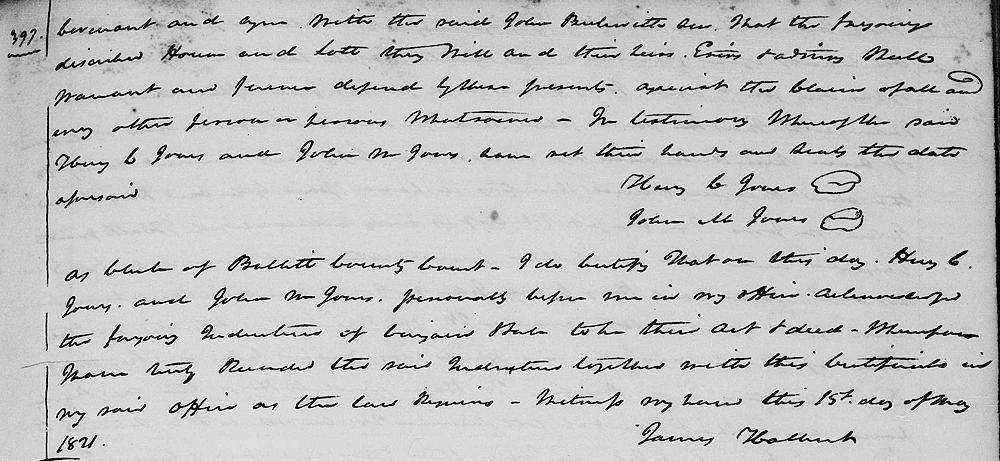 397. Covenant and agree with the said John Beckwith Sen. That the foregoing
described House and Lott they Will and their heirs. Exrs & admrs Shall
Warrant and forever defend by these presents. against the Claim of all and
every other person or persons Whatsoever – In testimony Whereof the said
Henry C Jones and John M Jones. have set their hands and seals the date
aforesaid
Henry C Jones
John M Jones
As Clerk of Bullitt County Court – I do Certify That on this day. Henry C.
Jones. and John M Jones. personally before me in my office. Acknowledged
the foregoing Indenture of bargain Sale to be their Act & deed – Whereupon
I have truly Recorded the said Indenture together with this Certificate in
my said office as the law Requires – Witness my hand this 15th day of May
1821.
James Halbert